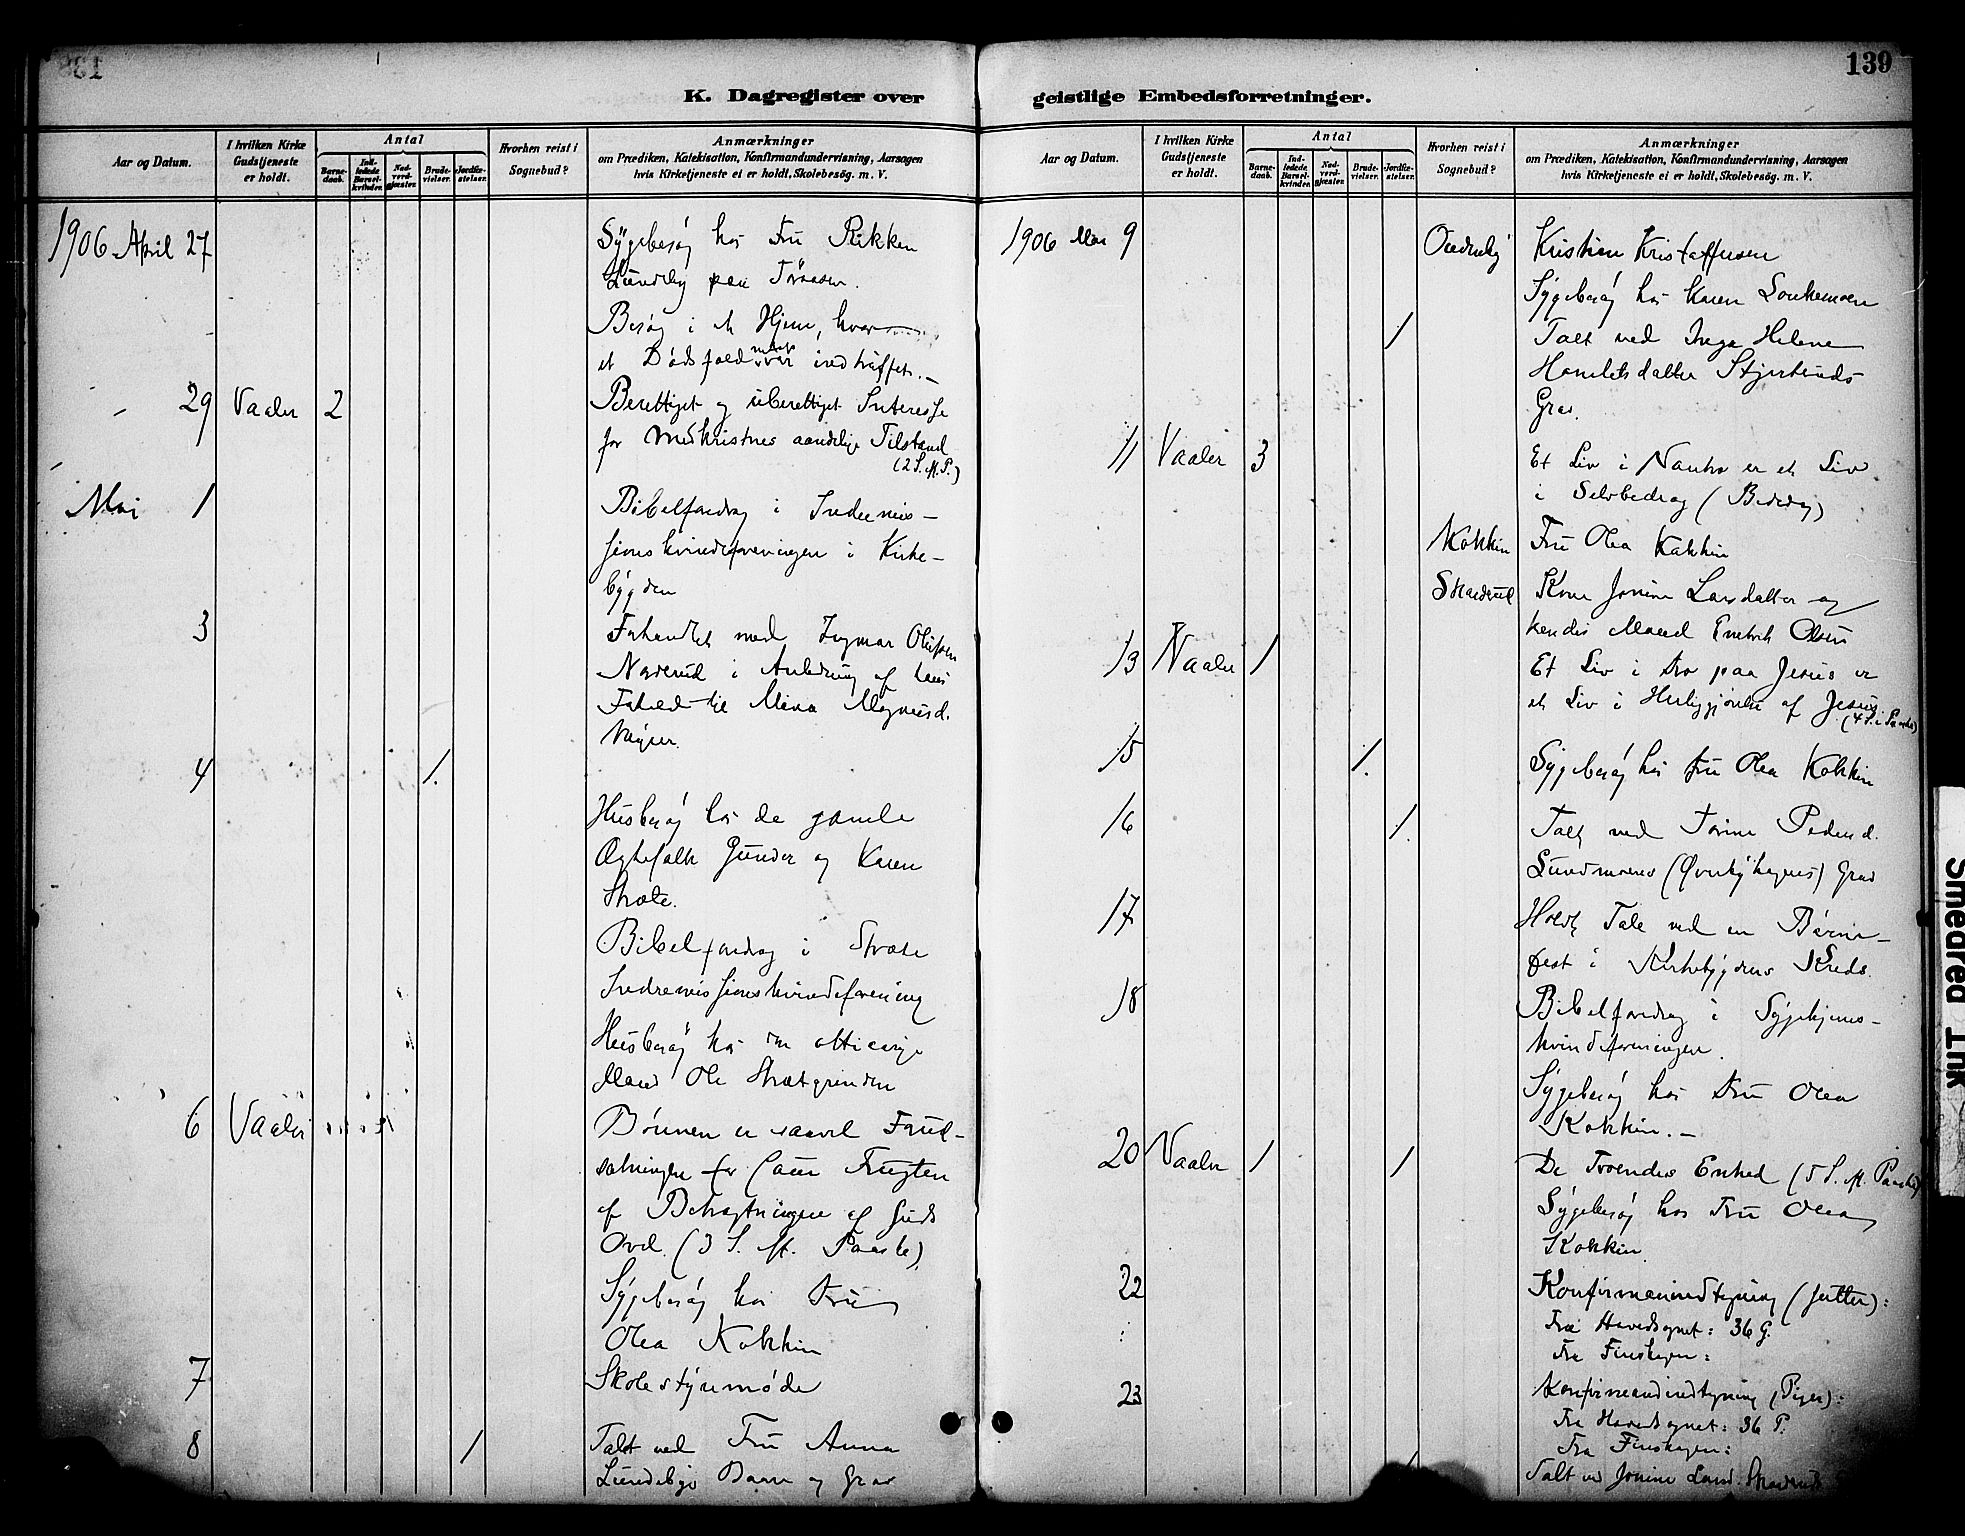 138
K. Dagregister over
Aar og Datum.
I hvilken Kirke Gudstjeneste er holdt.
Antal
Barne-daab.
Ind-ledede Barsel-kvinder.
Nad-verd-gjæster.
Brude-vielser.
Jordfæ-stelser.
Hvorhen reist i Sognebud?
Anmærkninger
om Prædiken, Katekisation, Konfirmandundervisning, Aarsagen
hvis Kirketjeneste ei er holdt, Skolebesøg. m. V.
1906 April 27
Sygebesøg hos Fru Rikken
Lundeby paa
Besøg i et Hjem, hvor
et Dødsfald var indtruffet.
29 Vaaler 2
Berettiget og uberettiget Interesse
for Medkristnes aandelige Tilstand
(2 S. e. P.)
Mai 1
Bibelforedrag i Indremis-
sionskvindeforeningen i Kirke-
bygden
3
Forhandlet med Ingmar Olufsen
Naverud i Anledning af hans
Forhold til Mina Magnusd.
4 1.
Husbesøg hos de gamle
Ægtefolk Gunder og Karen
Stræte.
Bibelforedrag i Stræte
Indremissionskvindeforening
Husbesøg hos den ottiaarige
Mand Ole Strætgrenden
6 Vaaler
Bønnen er saavel Forud-
sætningen for som Frugten
af Betragtningen af Guds
Ord. (3 S. eft. Paaske)
Sygebesøg hos Fru
Olea Kokkin
7
Skolestyremøde
8 1
Talt ved Fru Anna
Lundebys Baare og Grav
139
geistlige Embedsforretninger.
Aar og Datum.
I hvilken Kirke Gudstjeneste er holdt.
Antal
Barne-daab.
Ind-ledede Barsel-kvinder.
Nad-verd-gjæster.
Brude-vielser.
Jordfæ-stelser.
Hvorhen reist i Sognebud?
Anmærkninger
om Prædiken, Katekisation, Konfirmandundervisning, Aarsagen
hvis Kirketjeneste ei er holdt, Skolebesøg. m. V.
1906 Mai 9
Kristian Kristoffersen
Sygebesøg hos Karen
1 Talt ved Inga Helene
Grav.
11 Vaaler 3
Et Liv i Vantro er et Liv
i Selvbedrag (Bededag)
Kokkin Fru Olea Kokkin
Skarderud Kone Jonine Larsdatter og
hendes Mand Olsen
13 Vaaler 1
Et Liv i Tro paa Jesus er
et Liv i Herliggjørelse af Jesus
15 1.
Sygebesøg hos Fru Olea Kokkin
16 1.
Talt ved Pedersd.
Grav
17
Holdt Tale ved en Børne-
fest i Kirkebygdens Kreds.
18
Bibelforedrag i Sygehjems-
kvindeforeningen.
Sygebesøg hos Fru Olea
Kokkin. –
20 Vaaler 1 1
De Troendes Enhed (5 S. eft. Paaske)
Sygebesøg hos Fru Olea
Kokkin
22
Konfirmandindtegning (Gutter):
Fra Hovedsognet: 36 G.
Fra Finskogen:
23
Konfirmandindtegning (Piger):
Fra Hovedsognet: 36 P.
Fra Finskogen:
Talt ved Jonine Larsd.
Smeared Ink